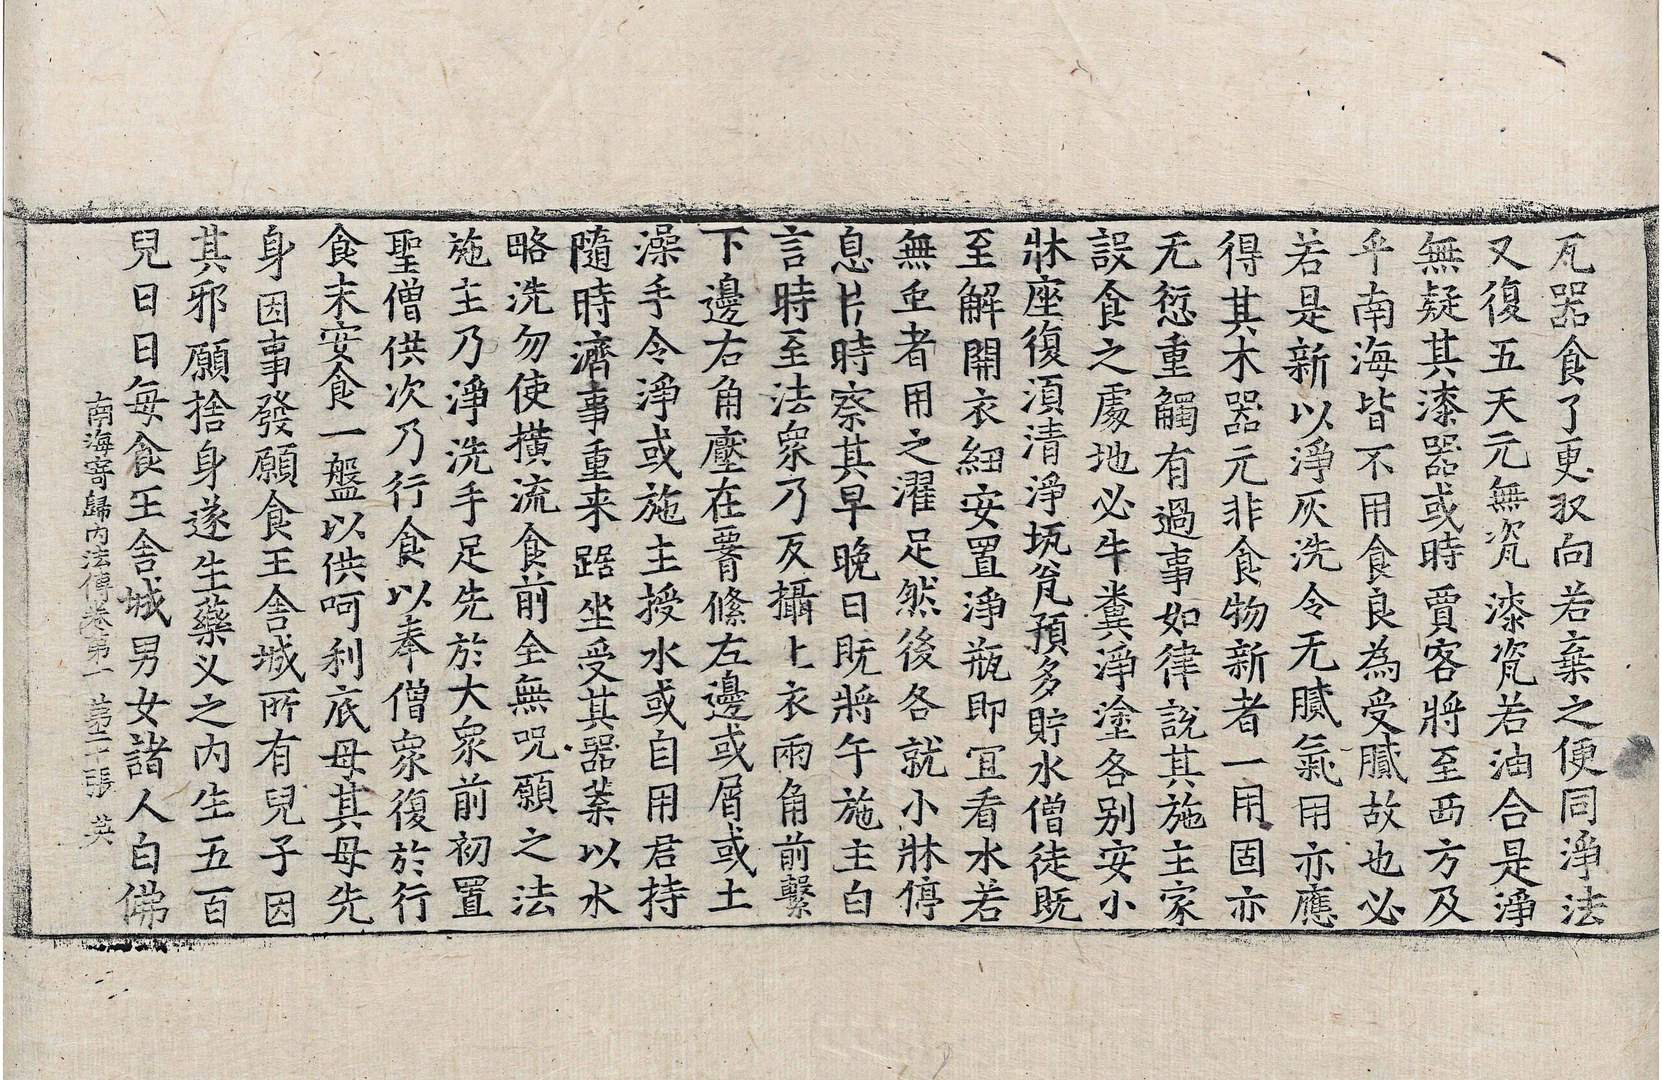 瓦器食了更収向若棄之便同淨法
又復五天元無瓷漆瓷若油合是淨
無疑其漆器或時賈客將至西方及
乎南海皆不用食良為受膩故也必
若是新以淨灰洗令无膩氣用亦應
得其木器元非食物新者一用固亦
无愆重觸有過事如律說其施主家
設食之處地必牛糞淨塗各別安小
牀座復湏清淨瓨瓮預多貯水僧徒既
至解開衣紐安置淨瓶即宜看水若
無虫者用之濯足然後各就小牀停
息片時察其早晚日既將午施主白
言時至法衆乃反攝上衣兩角前繫
下邊右角壓在𦝫絛左邊或屑或土
澡手令淨或施主授水或自用君持
隨時濟事重来踞坐受其器葉以水
略洗勿使橫流食前全無呪願之法
施主乃淨洗手足先於大衆前初置
聖僧供次乃行食以奉僧衆復於行
食末安食一盤以供呵利底母其母先
身因事發願食王舍城所有兒子因
其邪願捨身遂生藥义之内生五百
兒日日每食王舍城男女諸人白佛
南海寄歸内法傳卷第一 苐二十張 英